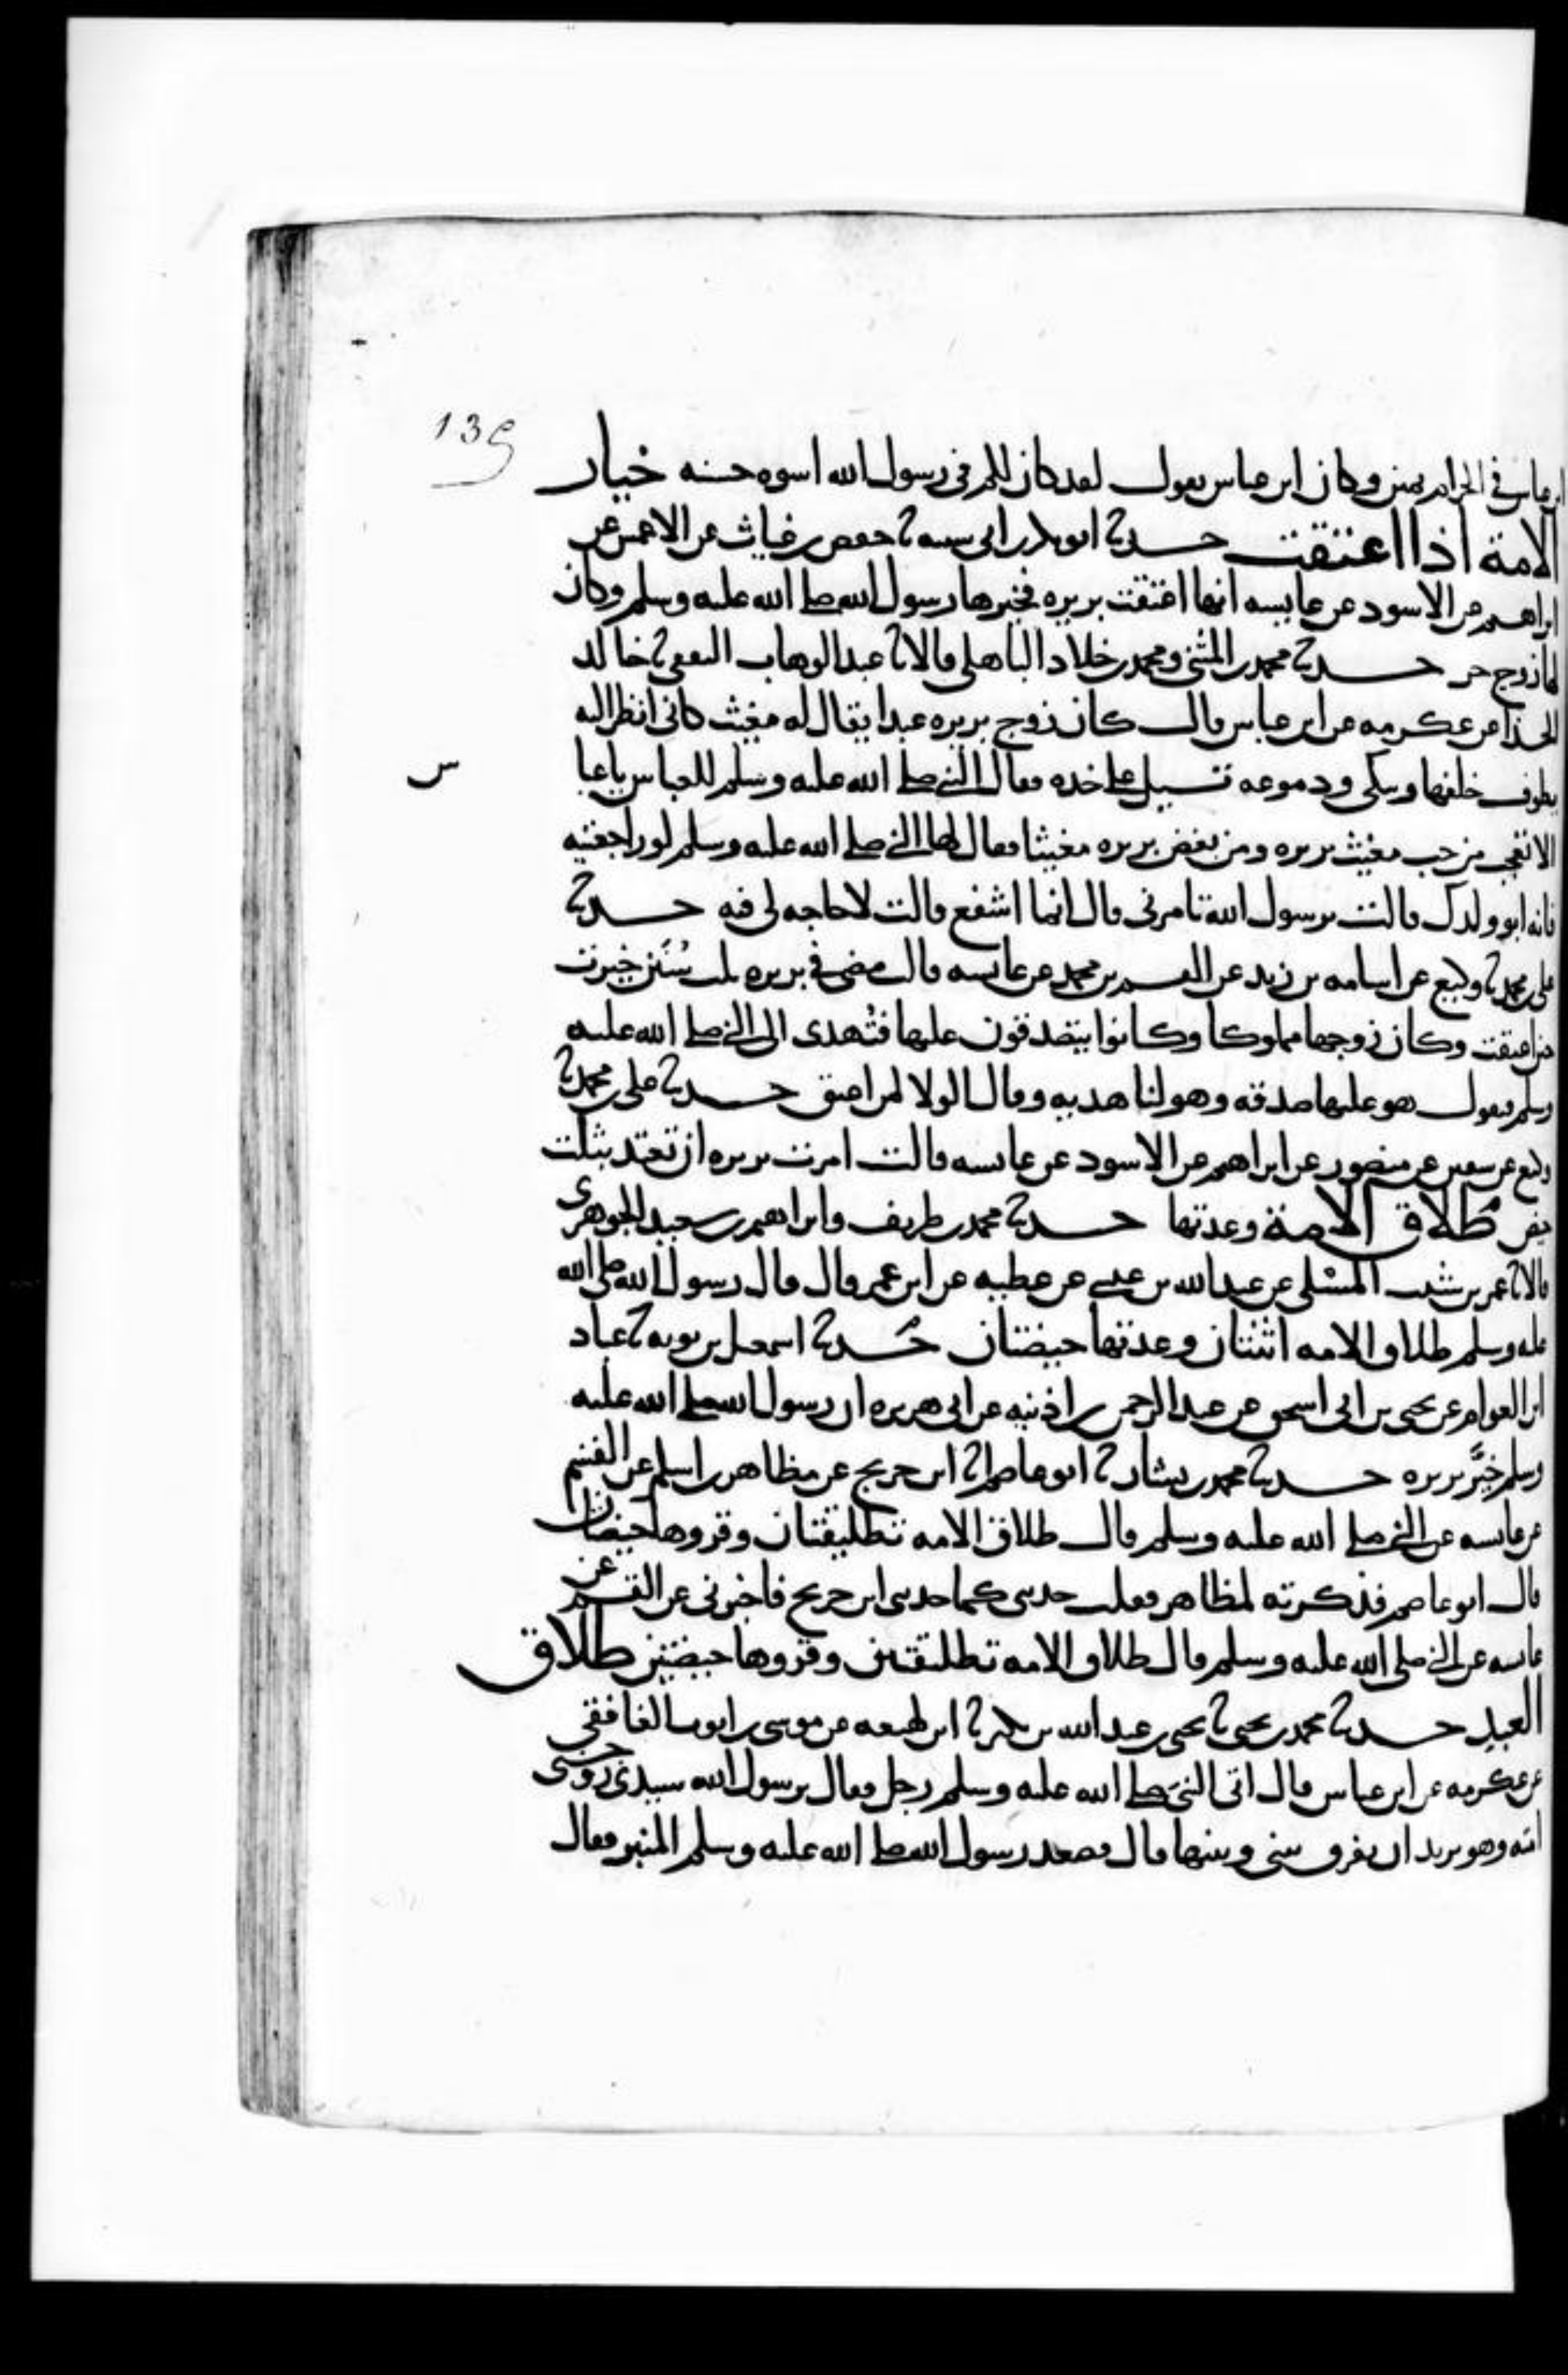 139
ابن عباس في الحرام يمين وكان ابن عباس يقول لقد كان لكم في رسول الله اسوه حسنه خيار
الامة اذا اعتقت حدثنا ابو بكر بن ابي شيبه ثنا حفص بن غياث عن الاعمش عن
ابراهيم عن الاسود عن عايشه انها اعتقت بريره فخيرها رسول الله صلى الله عليه وسلم وكان
لها زوج حر حدثنا محمد بن المثنى ومحمد بن خلاد الباهلي قالا ثنا عبد الوهاب الثقفي ثنا خالد
الحذا عن عكرمه عن ابن عباس قال كان زوج بريره عبدا يقال له مغيث كاني انظر اليه
يطوف خلفها ويبكي ودموعه تسيل على خده فقال النبي صلى الله عليه وسلم للعباس يا عبا
س
الا تعجب من حب مغيث بريره ومن بغض بريره مغيثا فقال لها النبي صلى الله عليه وسلم لو راجعتيه
فانه ابو ولدك قالت يرسول الله تامرني قال انما اشفع قالت لا حاجه لي فيه حدثنا
علي بن محمد ثنا وكيع عن اسامه بن زيد عن القسم بن محمد عن عايشه قالت مضى في بريره ثلث سنن خيرت
حين اعتقت وكان زوجها مملوكا وكانوا يتصدقون عليها فتهدى الى النبي صلى الله عليه
وسلم فيقول هو عليها صدقه وهو لنا هديه وقال الولا لمن اعتق حدثنا علي بن محمد ثنا
وكيع عن سفين عن منصور عن ابراهيم عن الاسود عن عايشه قالت امرت بريره ان تعتد بثلث
حيض طلاق الامة وعدتها حدثنا محمد بن طريف وابراهيم بن سعيد الجوهري
قالا ثنا عمر بن شبيب المسلي عن عبد الله بن عيسى عن عطيه عن ابن عمر قال قال رسول الله صلى الله
عليه وسلم طلاق الامه اثنتان وعدتها حيضتان حدثنا اسمعيل بن توبه ثنا عباد
ابن العوام عن يحيى بن ابي اسحق عن عبد الرحمن بن اذينه عن ابي هريره ان رسول الله صلى الله عليه
وسلم خير بريره حدثنا محمد بن بشار ثنا ابو عاصم ثنا ابن جريج عن مظاهر بن اسلم عن القسم
عن عايشه عن النبي صلى الله عليه وسلم قال طلاق الامه تطليقتان وقروها حيضتان
قال ابو عاصم فذكرته لمظاهر فقلت حدثني كما حدثت ابن جريج فاخبرني عن القسم عن
عايشه عن النبي صلى الله عليه وسلم قال طلاق الامه تطليقتين وقروها حيضتين طلاق
العبد حدثنا محمد بن يحيى ثنا يحيى بن عبد الله بن بكير ثنا ابن لهيعه عن موسى بن ايوب الغافقي
عن عكرمه عن ابن عباس قال اتى النبي صلى الله عليه وسلم رجل فقال يرسول الله سيدي زوجني
امته وهو يريد ان يفرق بيني وبينها قال فصعد رسول الله صلى الله عليه وسلم المنبر فقال